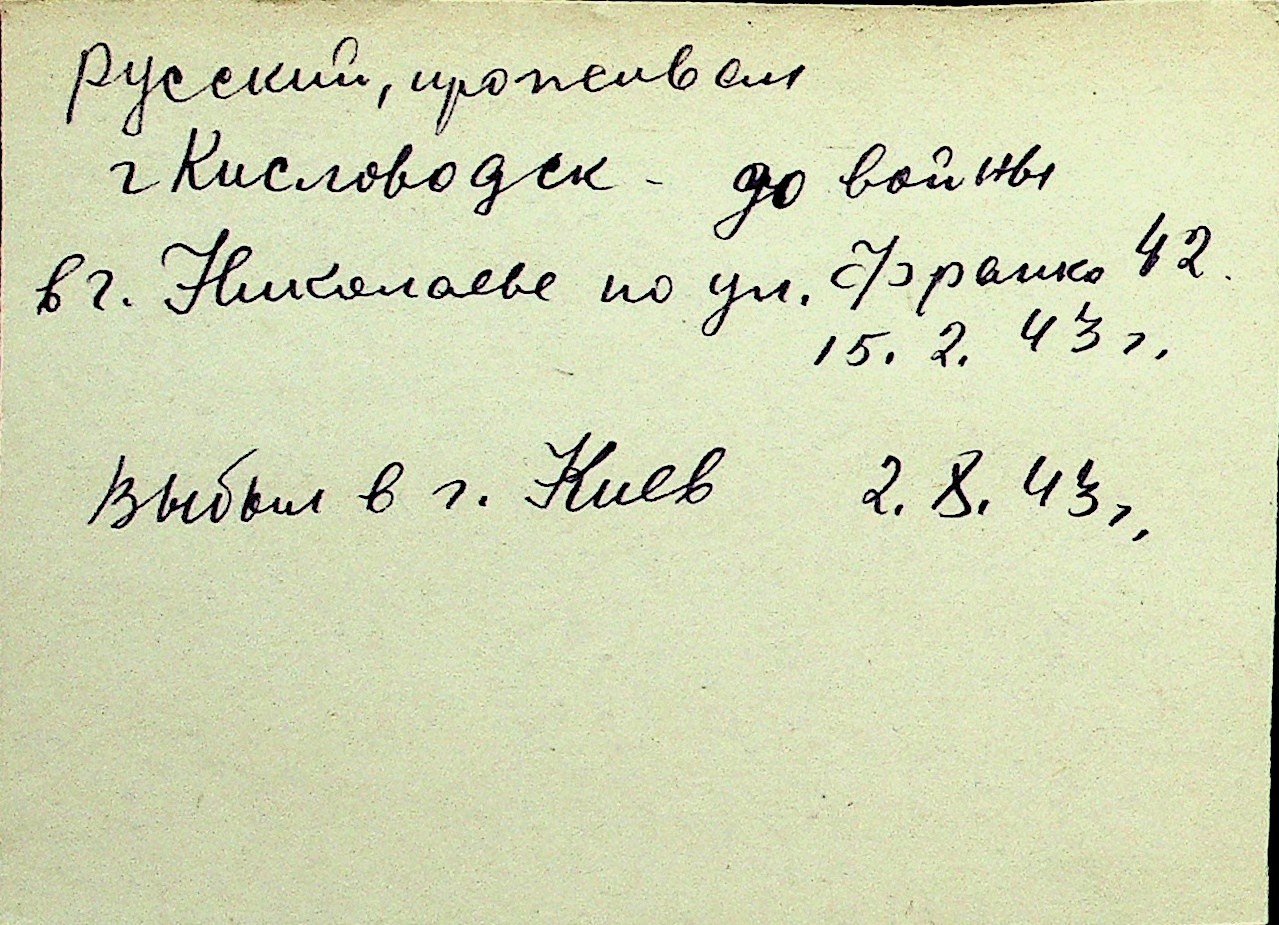 Русский, проживал
г Кисловодск - до войны
в г. Николаеве по ул. Франко 42.
15. 2. 43 г.
Выбыл в г. Киев 2. 8. 43 г.